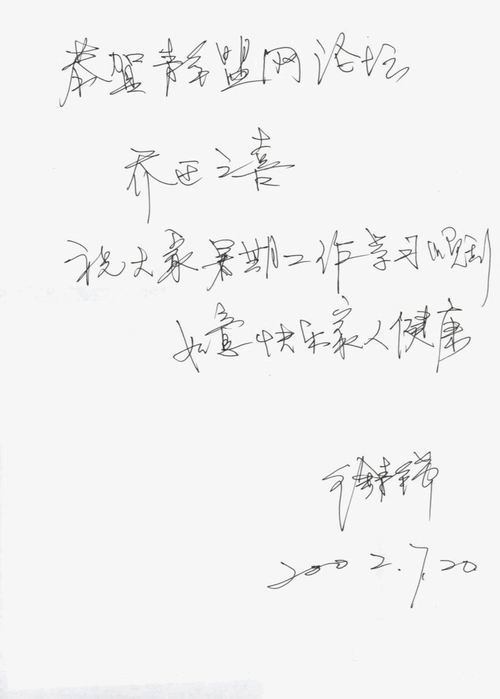 恭贺静盟网论坛
乔迁之喜
祝大家暑期工作学习顺利
如意快乐家人健康
2002.7.20